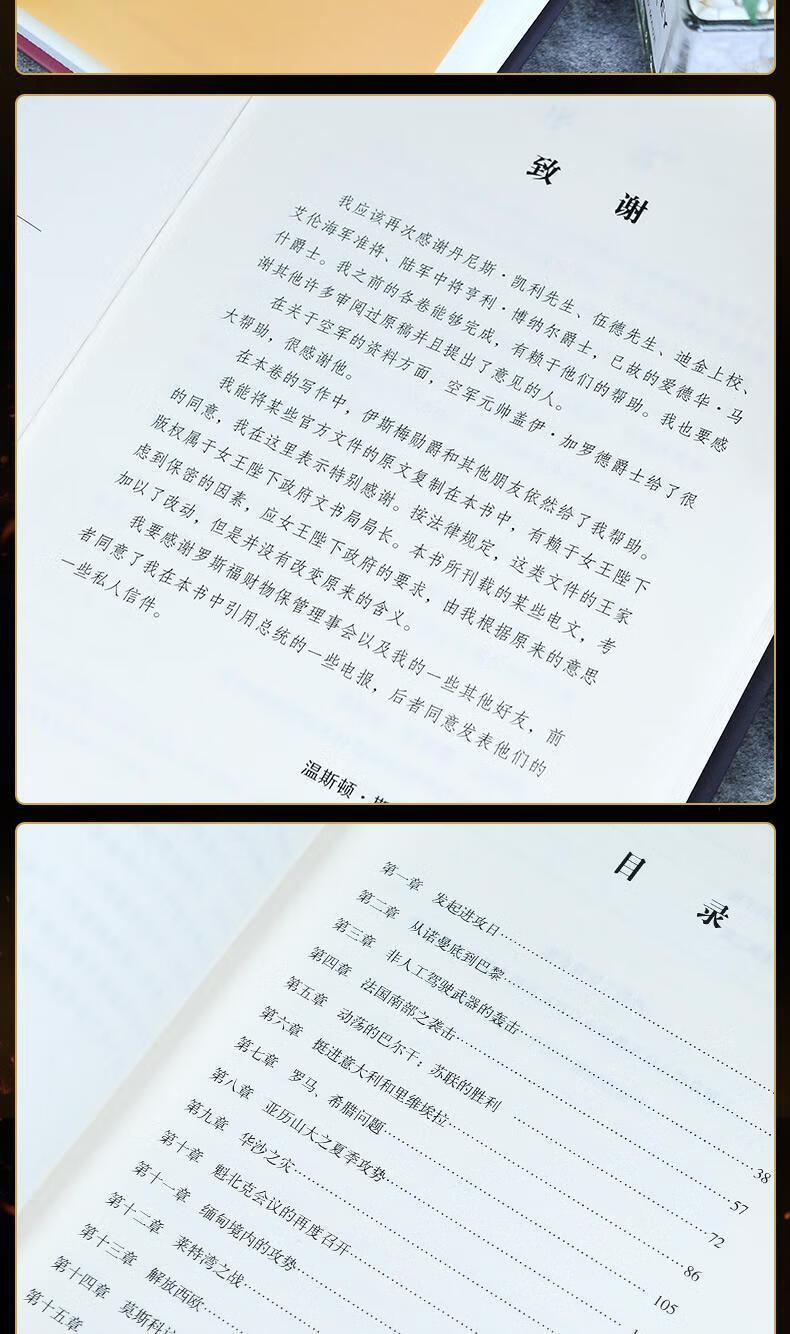 致 谢
我应该再次感谢丹尼斯·凯利先生、伍德先生、迪金上校、
艾伦海军准将、陆军中将亨利·博纳尔爵士，已故的爱德华·马
什爵士。我之前的各卷能够完成，有赖于他们的帮助。我也要感
谢其他许多审阅过原稿并且提出了意见的人。
在关于空军的资料方面，空军元帅盖伊·加罗德爵士给了很
大帮助，很感谢他。
在本卷的写作中，伊斯梅勋爵和其他朋友依然给了我帮助。
我能将某些官方文件的原文复制在本书中，有赖于女王陛下
的同意，我在这里表示特别感谢。按法律规定，这类文件的王家
版权属于女王陛下政府文书局局长。本书所刊载的某些电文，考
虑到保密的因素，应女王陛下政府的要求，由我根据原来的意思
加以了改动，但是并没有改变原来的含义。
我要感谢罗斯福财物保管理事会以及我的一些其他好友，前
者同意了我在本书中引用总统的一些电报，后者同意发表他们的
一些私人信件。
温斯顿·斯
目 录
第一章 发起进攻日
第二章 从诺曼底到巴黎
第三章 非人工驾驶武器的轰击
第四章 法国南部之袭击
第五章 动荡的巴尔干：苏联的胜利 38
第六章 挺进意大利和里维埃拉 57
第七章 罗马、希腊问题 72
第八章 亚历山大之夏季攻势 86
第九章 华沙之灾 105
第十章 魁北克会议的再度召开
第十一章 缅甸境内的攻势
第十二章 莱特湾之战
第十三章 解放西欧
第十四章 莫斯科
第十五章